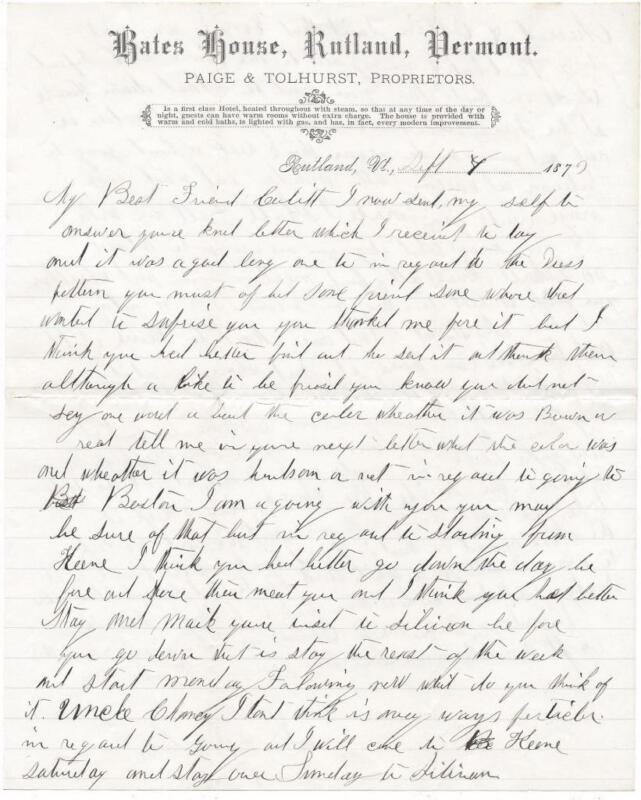 Bates House, Rutland, Vermont.
PAIGE & TOLHURST, PROPRIETORS.
Is a first class Hotel, heated throughout with steam, so that at any time of the day or
night, guests can have warm rooms without extra charge. The house is provided with
warm and cold baths, is lighted with gas, and has, in fact, every modern improvement.
Rutland, Vt., Sept 1879
My Best Friend I now my self to
answer youre letter which I to day
and it was a good long one to in regaut to the Dress
pattern you must of some friend some where that
wanted to surprise you you me fore it but I
think you had better out ho it thank them
although a like to be you know you not
sey one word a bout the coler wheather it was Bown or
read tell me in youre next letter what the color was
and wheather it was or not in regaut to going to
Boston I am a going with you may
be sure of that but in regaut to starting from
Keene I think you had better go down the day be
fore meat you I think you had better
Stay and youre to be fore
you go down that is stay the reast of the week
and start monday Following what do you think of
it. Uncle Chancy I think is any ways
in regaut to going I will to Keene
saturday and stay over Sunday to